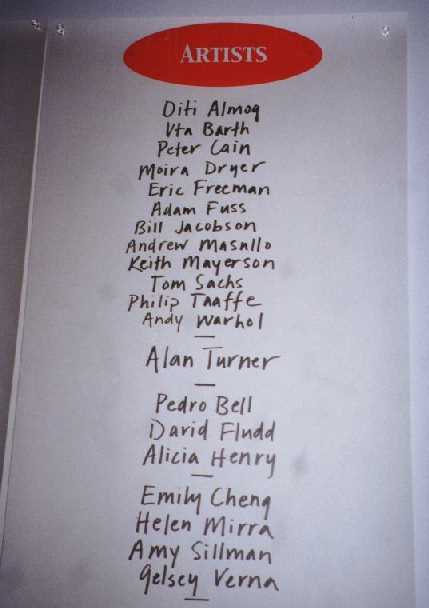 ARTISTS
Diti Almog
Uta Barth
Peter Cain
Moira Dryer
Eric Freeman
Adam Fuss
Bill Jacobson
Andrew Masullo
Keith Mayerson
Tom Sachs
Philip Taaffe
Andy Warhol
Alan Turner
Pedro Bell
David Fludd
Alicia Henry
Emily Cheng
Helen Mirra
Amy Sillman
Gelsey Verna